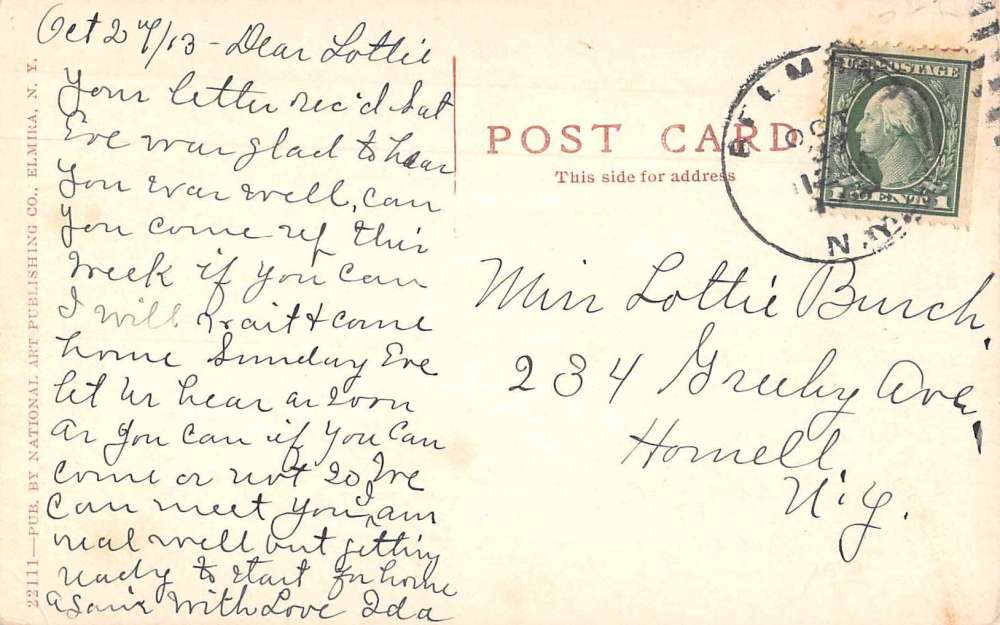 Oct 27/13 - Dear Lottie
Your letter rec'd Sat
Eve was glad to hear
you was well, can
you come up this
week if you can
I will wait & come
home Sunday Eve
let us hear as soon
as you can if you can
come or not so we
can meet you, I am
real well but getting
ready to start for home
again With Love Ida
22111—PUB. BY NATIONAL ART PUBLISHING CO., ELMIRA, N. Y.
POST CARD
This side for address
ELMIRA
OCT
N.Y.
U.S. POSTAGE
1 CENT 1
Miss Lottie Burch,
234 Greeley Ave,
Hornell,
N.Y.